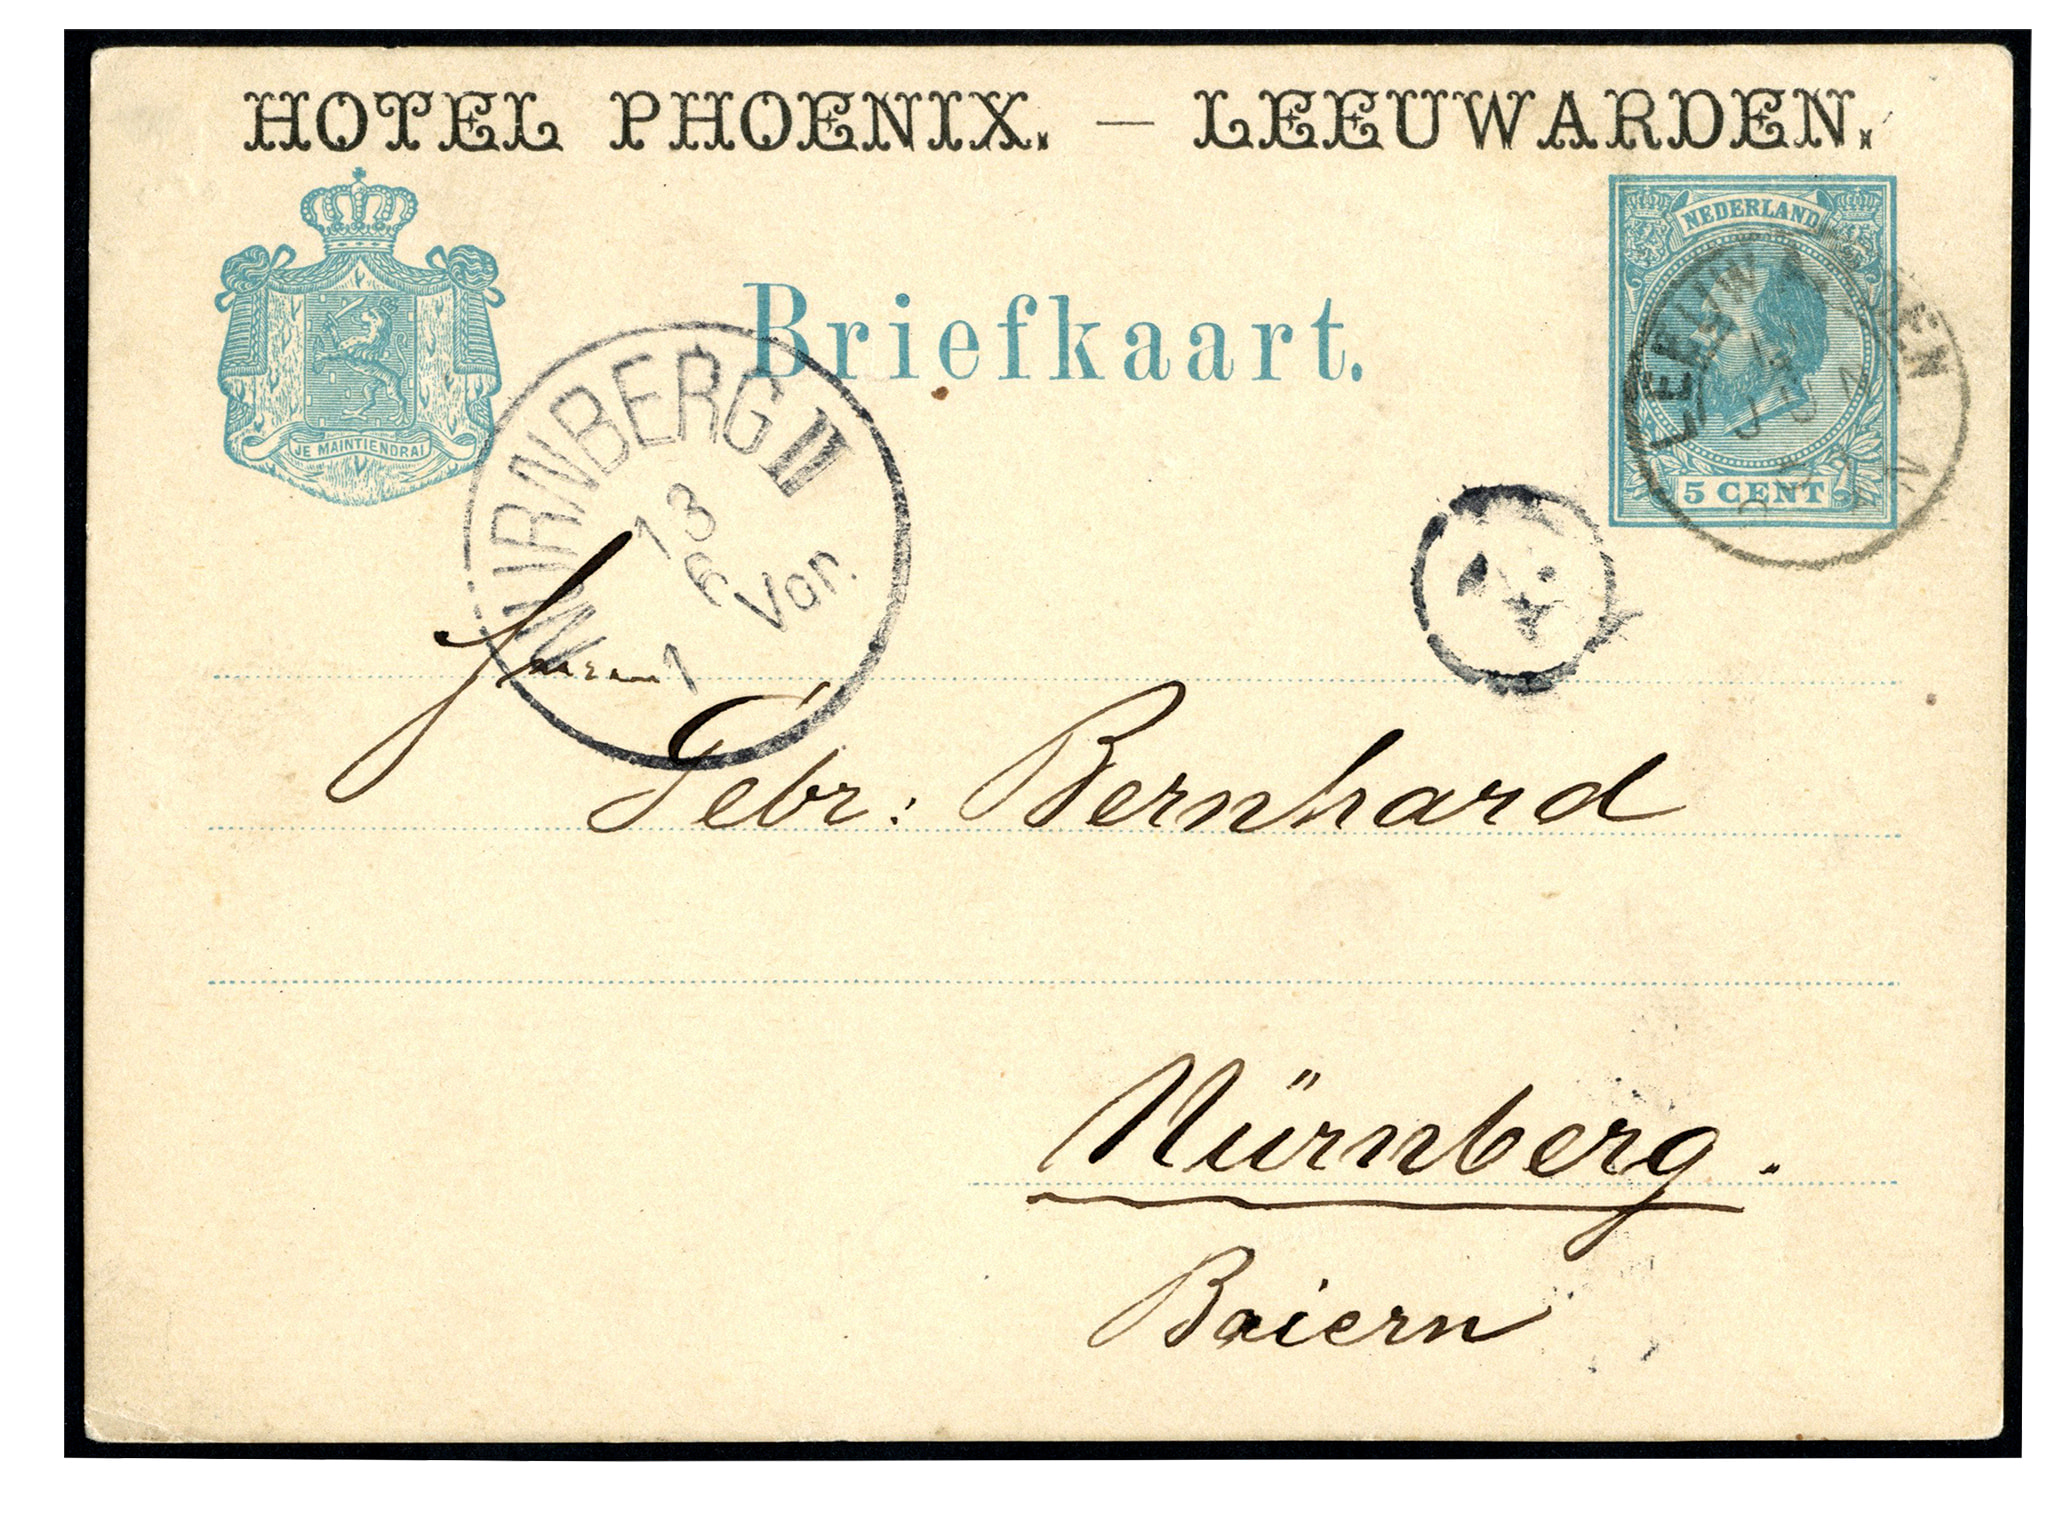 HOTEL PHOENIX. — LEEUWARDEN.
NEDERLAND
Briefkaart.
JE MAINTIENDRAI
5 CENT
LEEUWARDEN
JUN
NÜRNBERG II
13
6
1 Vor.
Gebr: Bernhard
Nürnberg.
Baiern